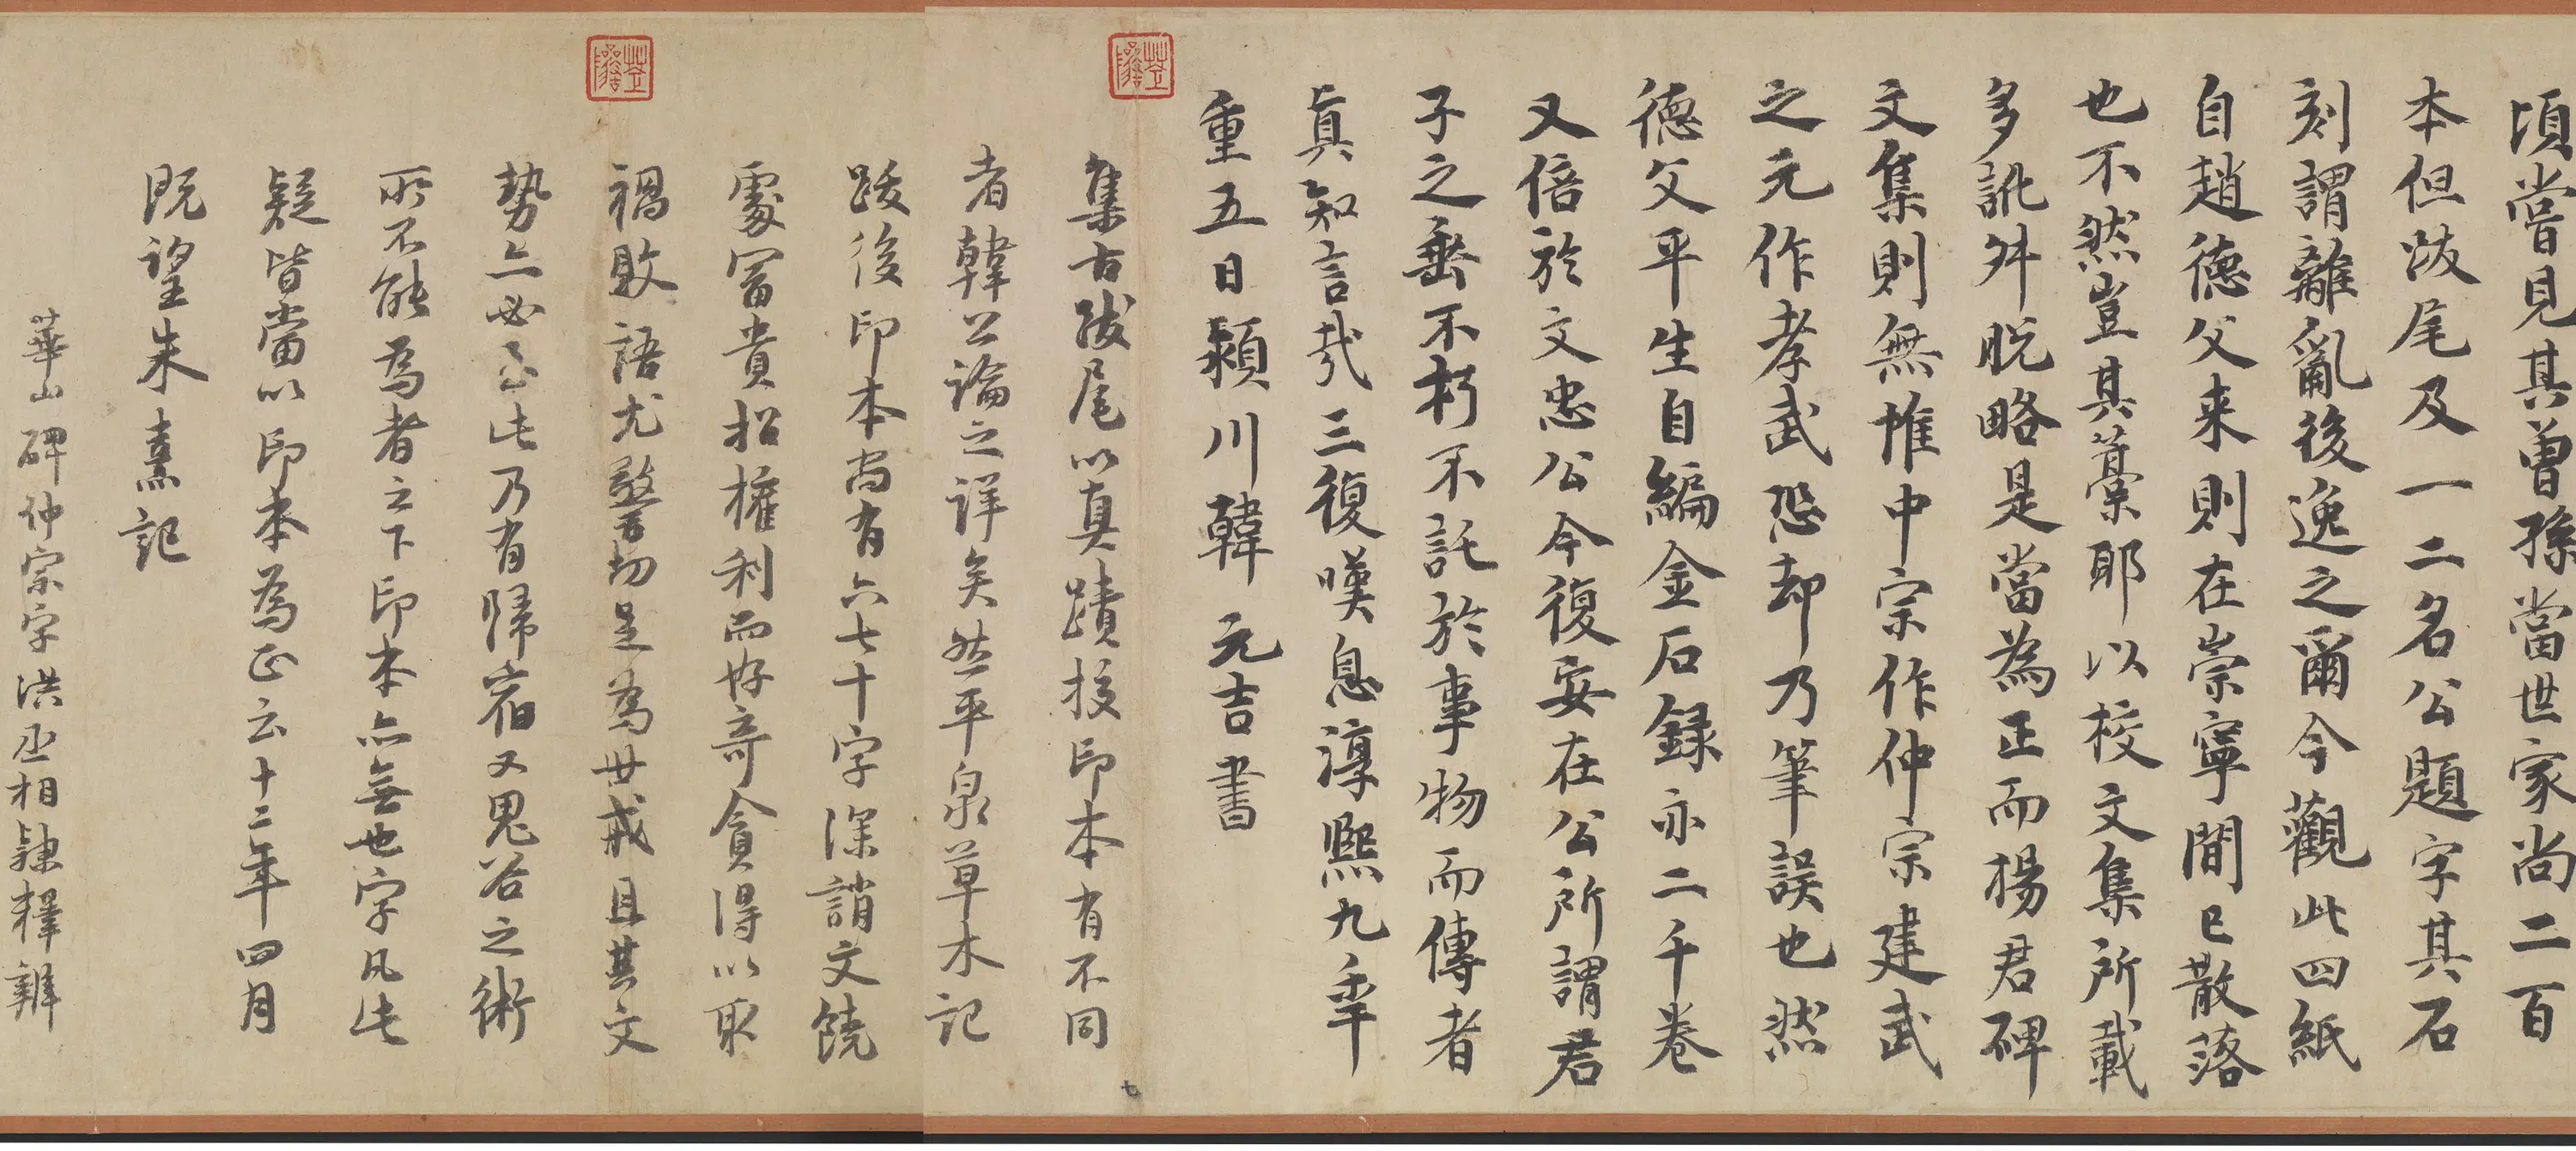 頃嘗見其曾孫當世家尚二百
本但跋尾及一二名公題字其石
刻謂離亂後逸之爾今觀此四紙
自趙德父来則在崇寧間已散落
也不然豈其藁耶以校文集所載
多訛舛脱略是當為正而楊君碑
文集則無惟中宗作仲宗建武
之元作孝武恐却乃筆誤也然
德父平生自編金石録亦二千卷
又倍於文忠公今復安在公所謂君
子之垂不朽不託於事物而傳者
真知言哉三復嘆息淳熙九年
重五日潁川韓元吉書
集古跋尾以真蹟校印本有不同
者韓公論之詳矣然平泉草木記
跋後印本尚有六七十字深誚文饒
處富貴招權利而好奇貪得以取
禍敗語尤警切足為世戒且其文
勢亦必至此乃有歸宿又鬼谷之術
所不能為者之下印本亦無也字凡此
疑皆當以印本為正云十二年四月
既望朱熹記
華山碑仲宗字洪丞相隸釋辨